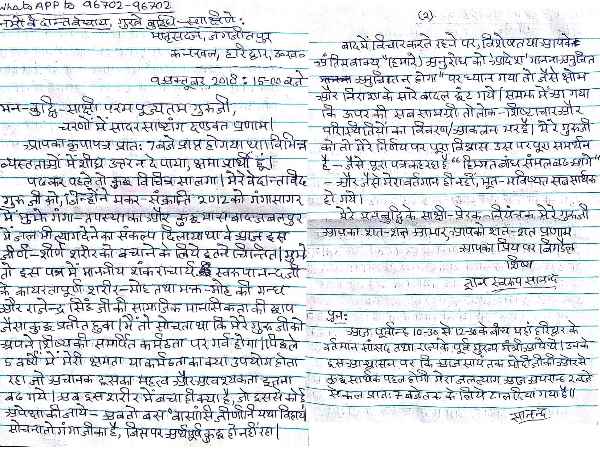 WhatsAPP to 96702-96702
मातृसदन, जगजीतपुर
कनखल, हरिद्वार, उत्तराखण्ड
9 अक्टूबर, 2018 : 15-00 बजे
मन-बुद्धि-साक्षी परम पूज्यतम गुरुजी,
चरणों में सादर साष्टांग दण्डवत प्रणाम।
आपका कृपापत्र प्रातः 7 बजे प्राप्त हो गया था। विभिन्न
व्यस्तताओं में शीघ्र उत्तर न दे पाया, क्षमा प्रार्थी हूं।
पढ़कर पहले तो कुछ विचित्र सा लगा। मेरे वेदान्तविद
गुरुजी को, जिन्होंने मकर-संक्रांति 2012 को गंगासागर
में मुझे गंगा-तपस्या का और कुछ मास बाद जबलपुर
में जल भी त्याग देने का संकल्प दिलाया था वे आज इस
जीर्ण-शीर्ण शरीर को बचाने के लिये इतने चिन्तित! मुझे
तो इस पत्र में माननीय शंकराचार्य स्वरूपानन्द जी
के कायरतापूर्ण शरीर-मोह तथा भक्त-मोह की गन्ध
और राजेन्द्र सिंह जी की सामाजिक मानसिकता की छाप
जैसा कुछ प्रतीत हुआ। मैं तो सोचता था कि मेरे गुरुजी को
अपने शिष्य की समर्पित कर्मठता पर गर्व होगा। पिछले
5 वर्षों में मेरी क्षमता या कर्मठता का क्या उपयोग होता
रहा जो अचानक इसका महत्व और आवश्यकता इतना
बढ़ गये। अब इस शरीर में बचा ही क्या है, जो इससे कोई
अपेक्षा की जाये - अब तो बस "वासांसि जीर्णानि यथा विहाय
सोचना तो गंगाजी का है, जिस पर अर्थपूर्ण कुछ हो नहीं रहा।
(2)
बाद में विचार करते रहने पर, विशेषतया आपके
अंतिम वाक्य "(हमारे) अनुरोध को आदेश मानना अनुचित
अनुचित न होगा" पर ध्यान गया तो जैसे क्षोभ
और निराशा के सारे बादल छंट गये। समझ में आ गया
कि ऊपर की सब सामग्री तो लोक-शिष्टाचार और
परिस्थितियों का विवरण/आकलन भर है। मेरे गुरुजी
को तो मेरे निर्णय पर पूरा विश्वास उस पर पूरा समर्थन
है - जैसे पूरा पत्र कह रहा है "हिम्मत बांध संभल बढ़ आगे"
- और जैसे मेरा वर्तमान ही नहीं, भूत-भविष्यत सब सार्थक
हो गये।
मेरे मन बुद्धि के साक्षी-प्रेरक-नियंत्रक मेरे गुरुजी
आपका शत-शत आभार, आपको शत-शत प्रणाम
आपका प्रिय पर बिगड़ैल
शिष्य
ज्ञान स्वरूप सानन्द
पुनः
आज पूर्वान्ह 10-30 से 12-30 के बीच यहां हरिद्वार के
वर्तमान सांसद तथा राज्य के पूर्व मुख्य मंत्री आये थे। उनके
इस आश्वासन पर कि आज सायं तक मोदीजी की ओर से
कुछ सार्थक पहल होगी मेरा जल त्याग आज अपरान्ह 2 बजे
से कल प्रातः 7 बजे तक के लिये टाल दिया गया है।।
सानन्द